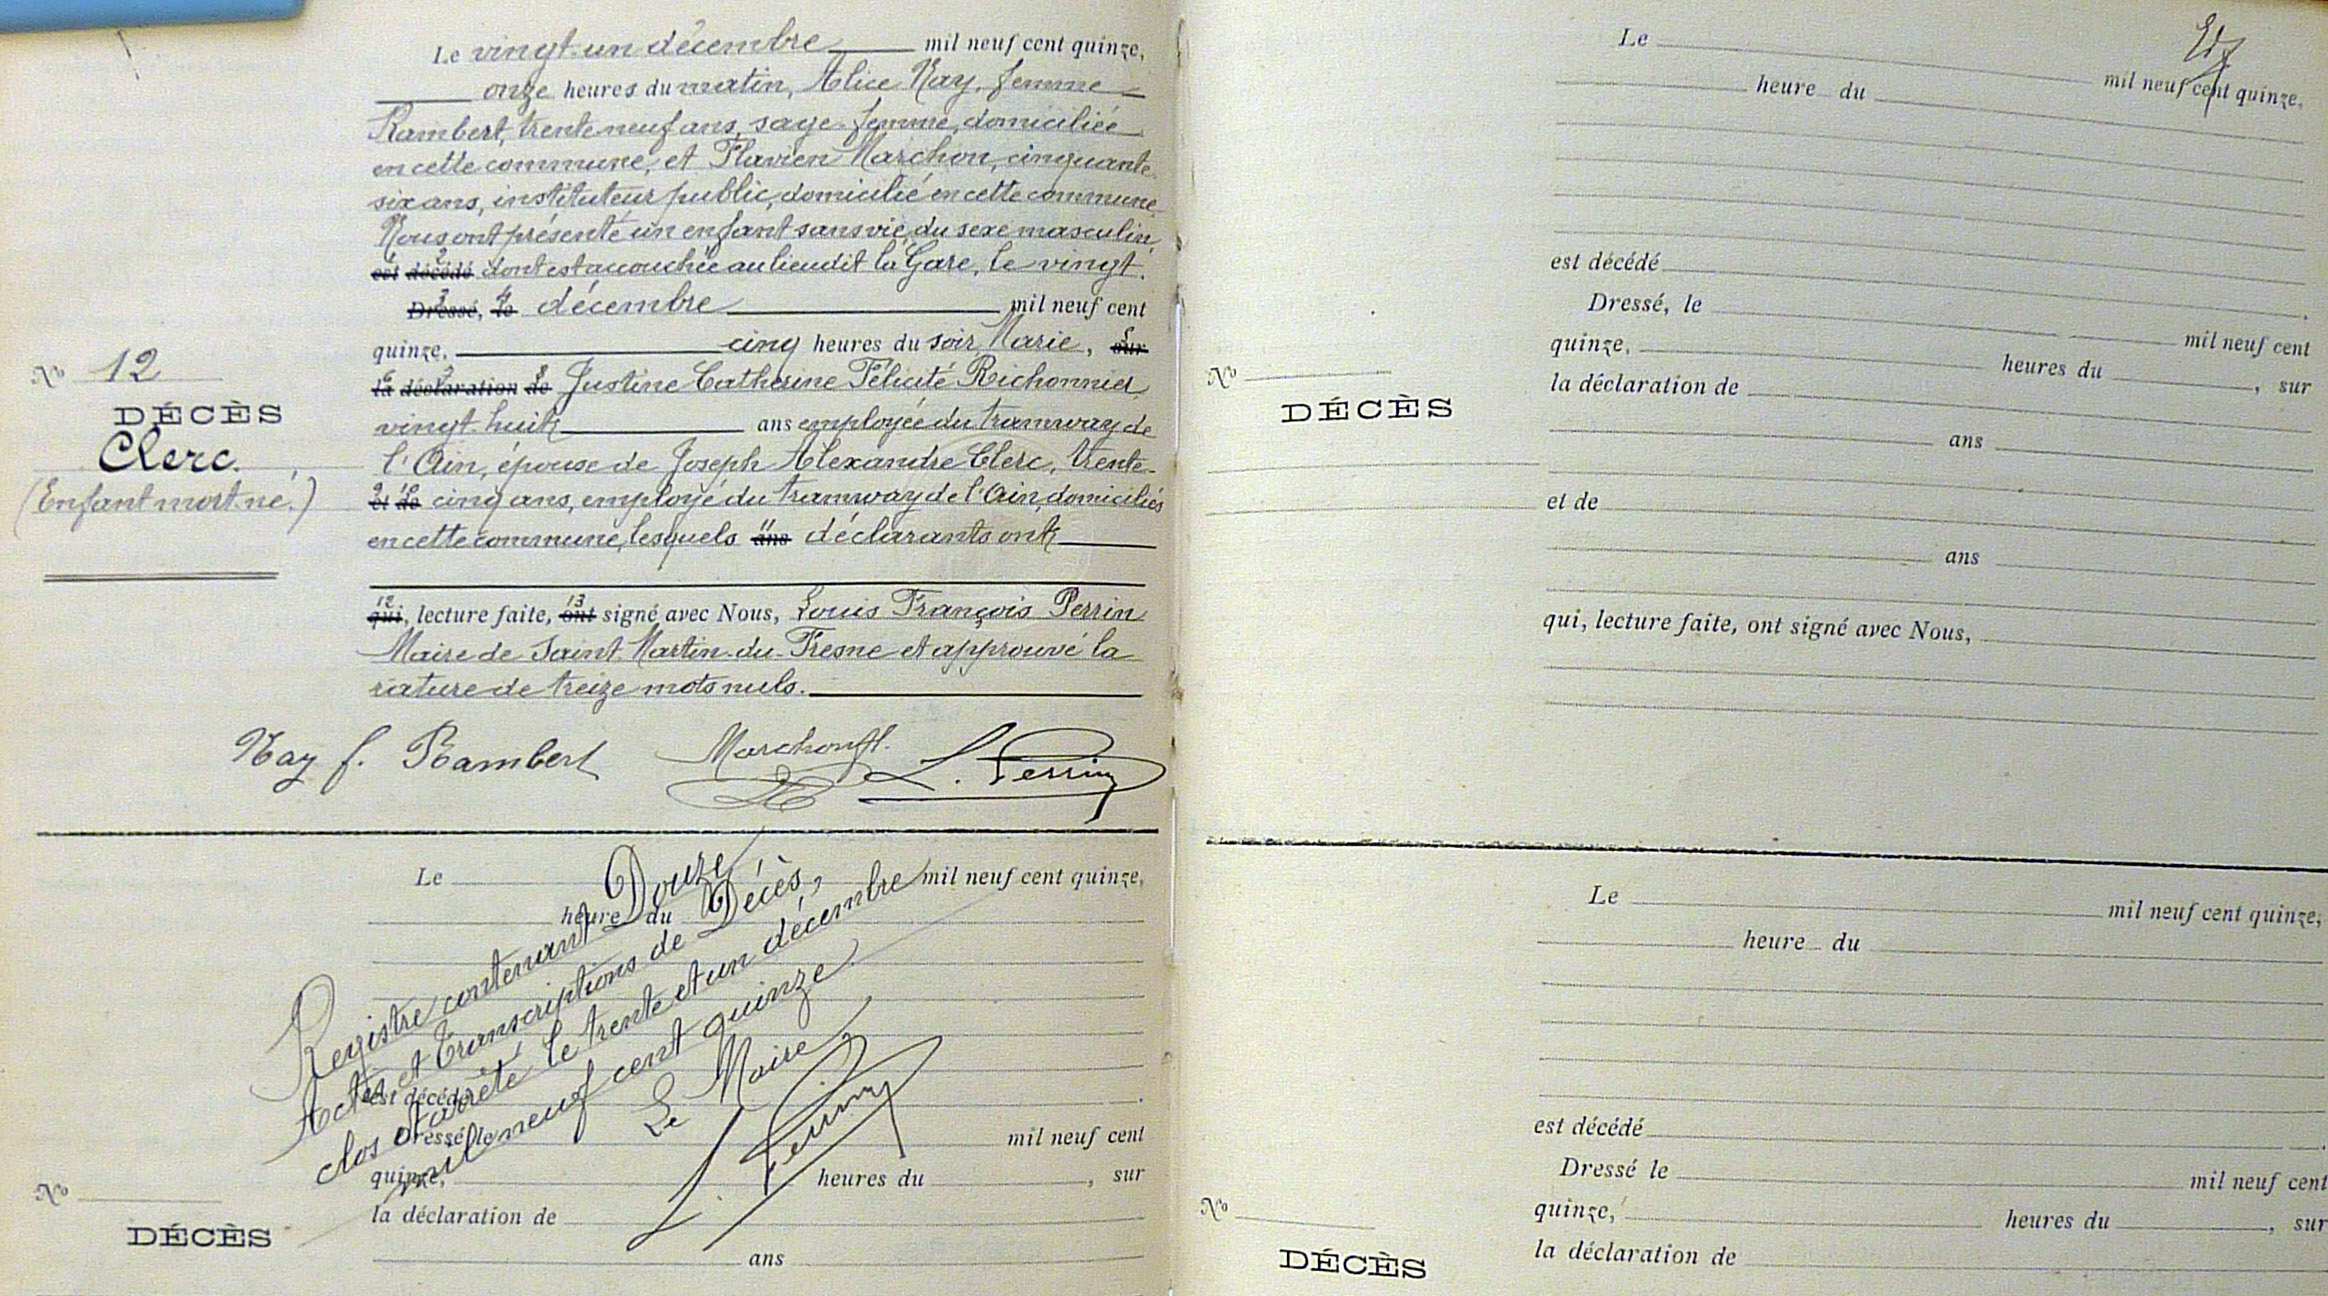 Le vingt-un décembre mil neuf cent quinze,
onze heures du matin, Alice Nay, femme
Rambert, trente neuf ans, sage-femme, domiciliée
en cette commune, et Flavien Marchon, cinquante-
six ans, instituteur public, domicilié en cette commune
Nous ont présenté un enfant sans vie, du sexe masculin,
1 2
est décédé dont est accouchée au lieu dit la Gare, le vingt
3 4
Dressé, le décembre mil neuf cent
quinze, cinq heures du soir, Marie, sur
5
6 7 8
la déclaration de Justine Catherine Félicité Richonnier
vingt-huit ans employée du tramway de
l'Ain, épouse de Joseph Alexandre Clerc, trente-
9 10
et de cinq ans, employé du tramway de l'Ain, domiciliés
11
en cette commune, lesquels ans déclarants ont
12 13
qui, lecture faite, ont signé avec Nous, Louis François Perrin
Maire de Saint-Martin-du-Fresne et approuvé la
rature de treize mots nuls.
No 12
DÉCÈS
Clerc
(Enfant mort-né.)
Nay f. Rambert Marchon fl. L. Perrin
Le mil neuf cent quinze,
heure du
est décédé
Dressé le mil neuf cent
quinze, heures du , sur
la déclaration de
ans
No
DÉCÈS
Registre contenant Douze
Actes et Transcriptions de Décès,
clos et arrêté le trente et un décembre
mil neuf cent quinze
Le Maire,
L. Perrin
Le mil neuf cent quinze,
heure du
est décédé
Dressé, le mil neuf cent
quinze, heures du , sur
la déclaration de
ans
et de
ans
qui, lecture faite, ont signé avec Nous,
No
DÉCÈS
Le mil neuf cent quinze,
heure du
est décédé
Dressé le mil neuf cent
quinze, heures du , sur
la déclaration de
No
DÉCÈS